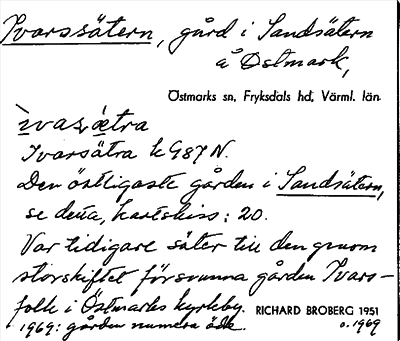 Ivarssätern, gård i Sandsätern
å Östmark,
Östmarks sn, Fryksdals hd, Värml. län
ìvasǽtra
Ivarsätra k G87 N.
Den östligaste gården i Sandsätern,
se detta, kartskiss: 20.
Var tidigare säter till den genom
storskiftet försvunna gården Ivars-
folk i Östmarks kyrkby. RICHARD BROBERG 1951
1969: gården numera öde. o. 1969